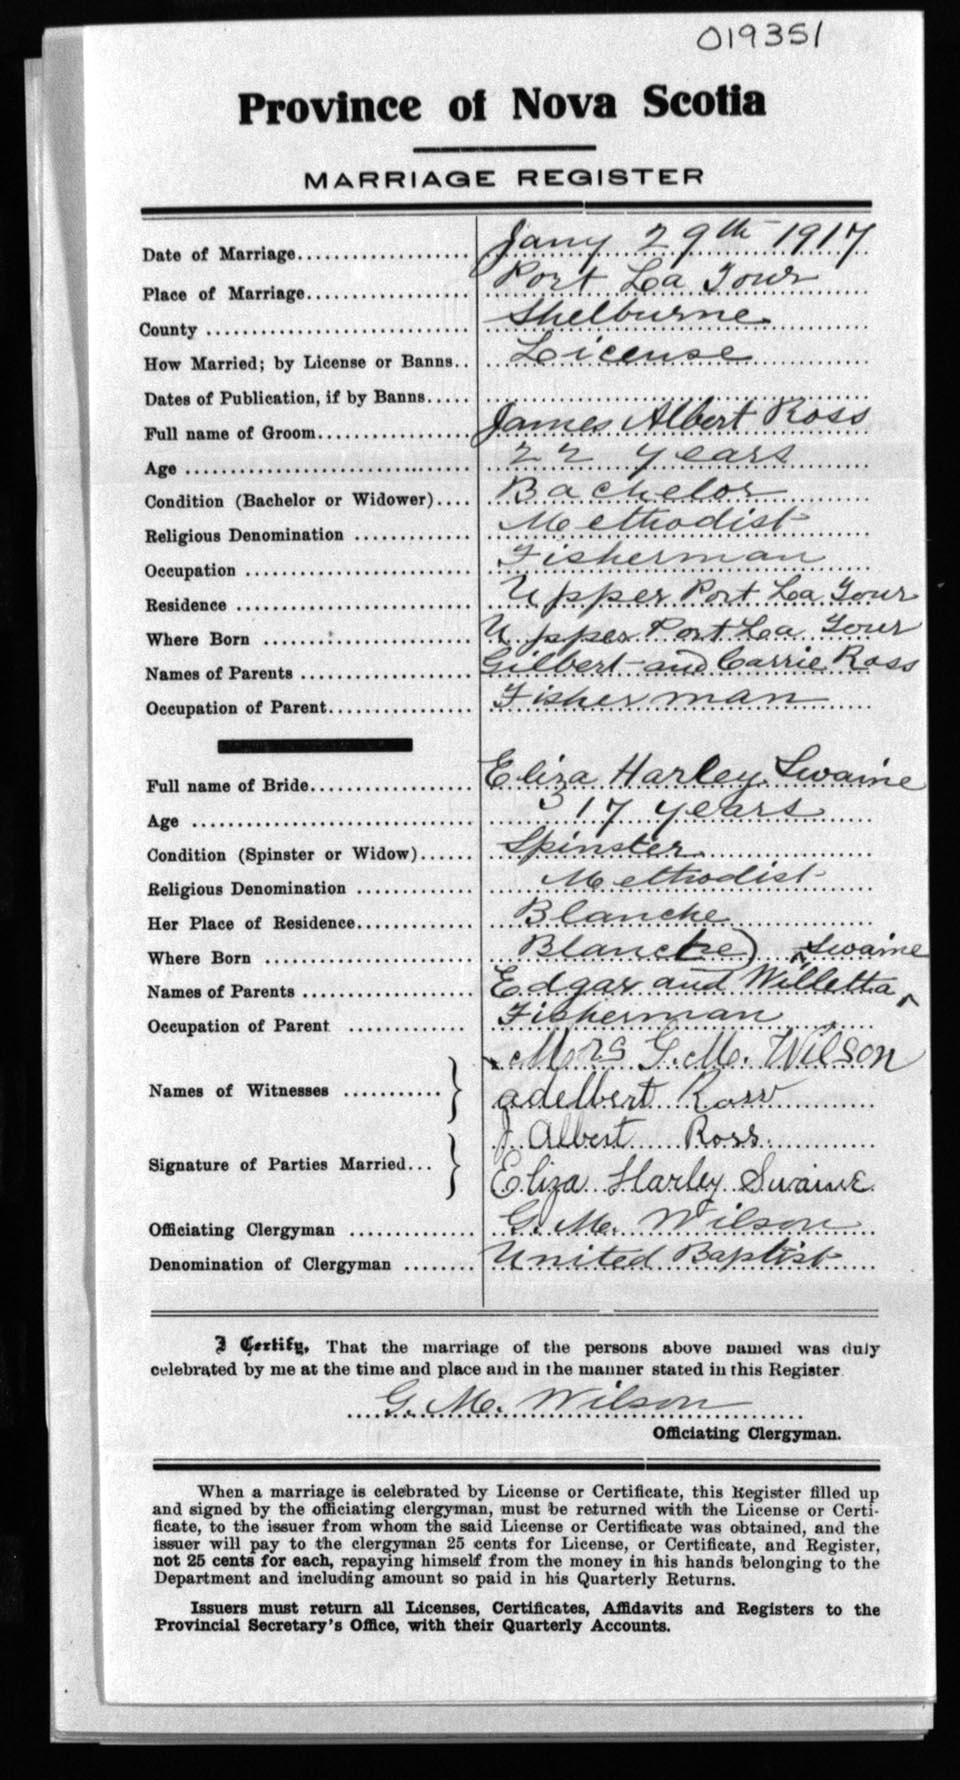 019351
Province of Nova Scotia
MARRIAGE REGISTER
Date of Marriage................... Jany 29th 1917
Place of Marriage................... Port La Tour
County ................... Shelburne
How Married; by License or Banns.. License
Dates of Publication, if by Banns.....
Full name of Groom................... James Albert Ross
Age ................... 22 years
Condition (Bachelor or Widower).... Bachelor
Religious Denomination ............. Methodist
Occupation ................... Fisherman
Residence ................... Upper Port La Tour
Where Born ................... Upper Port La Tour
Names of Parents ................... Gilbert and Carrie Ross
Occupation of Parent................. Fisherman
Full name of Bride................... Eliza Harley Swaine
Age ................... 17 years
Condition (Spinster or Widow)...... Spinster
Religious Denomination ............. Methodist
Her Place of Residence............. Blanche
Where Born ................... Blanche) Swaine
Names of Parents ................... Edgar and Willetta ^
Occupation of Parent ............. Fisherman
Names of Witnesses ........... } Mrs G. M. Wilson
Adelbert Ross
Signature of Parties Married... } J Albert Ross
Eliza Harley Swaine
Officiating Clergyman ............. G. M. Wilson
Denomination of Clergyman ........ United Baptist
I Certify, That the marriage of the persons above named was duly
celebrated by me at the time and place and in the manner stated in this Register
G. M. Wilson
Officiating Clergyman.
When a marriage is celebrated by License or Certificate, this Register filled up
and signed by the officiating clergyman, must be returned with the License or Certi-
ficate, to the issuer from whom the said License or Certificate was obtained, and the
issuer will pay to the clergyman 25 cents for License, or Certificate, and Register,
not 25 cents for each, repaying himself from the money in his hands belonging to the
Department and including amount so paid in his Quarterly Returns.
Issuers must return all Licenses, Certificates, Affidavits and Registers to the
Provincial Secretary's Office, with their Quarterly Accounts.